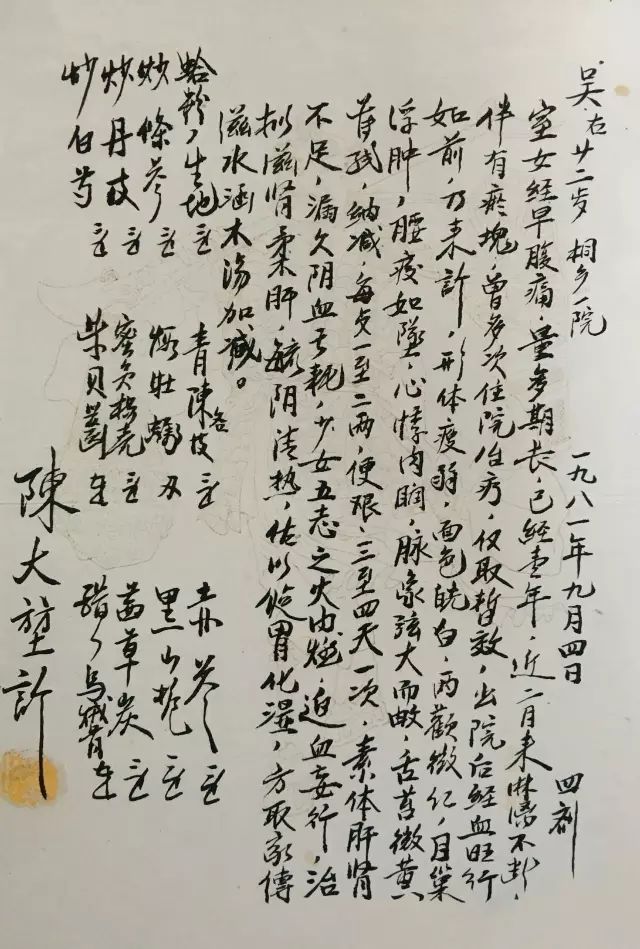 吴右 廿二岁 桐乡一院 一九八一年九月四日 四剂
室女经早腹痛，量多期长，已经壹年，近二月来淋漓不断，
伴有瘀块，曾多次住院治疗，仅取暂效，出院后经血旺行
如前，乃来诊，形体疲弱，面色㿠白，两颧微红，目窠
浮肿，腰疫如墜，心悸肉瞤，脉象弦大而, 舌苔微黄
纳减，每贞一至二两，便艰，三至四天一次，素体肝肾
不足，漏久阴血亏耗，少女五志之火内燃，迫血妄行，治
拟滋肾柔肝，毓阴清热，佐以 胃化湿，方取家傳
滋水涵木汤加减。
蛤粉 生地 青陈各 赤芍
炒條芩 煅牡蛎 黑山栀
炒丹皮 蜜炙 壳 茜草炭
炒白芍 紫贝齿 乌贼骨
陳大堃